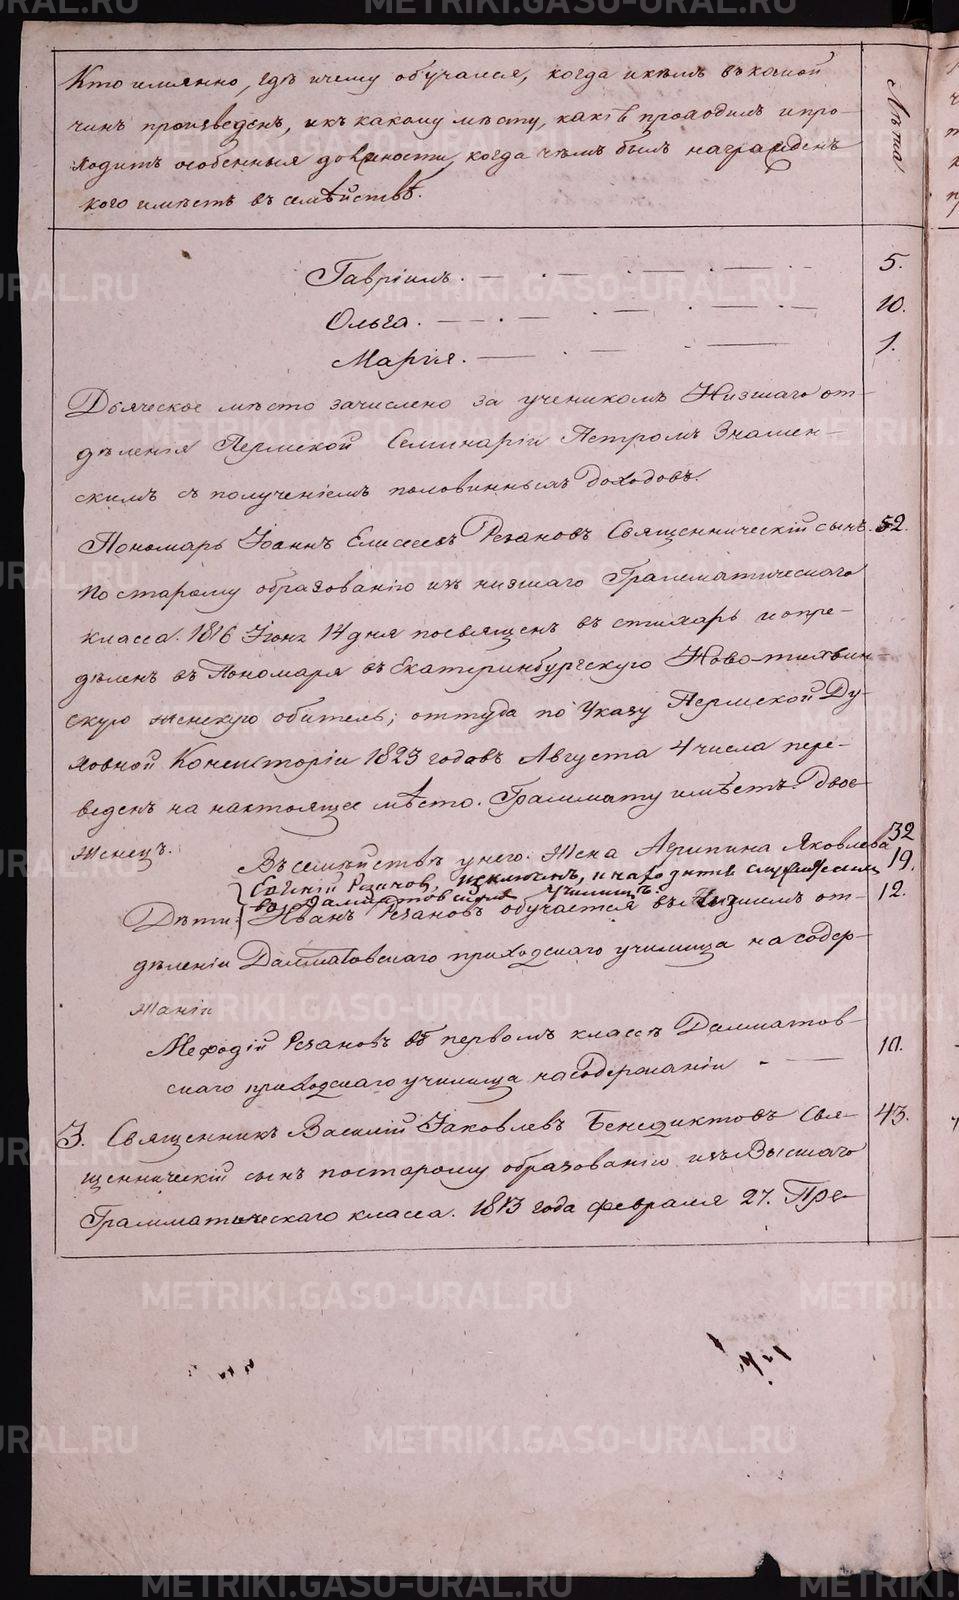 Кто имянно, гдѣ и чему обучался, когда и кѣмъ въ какой
Лѣта.
чинъ произведенъ, и къ какому мѣсту, какія проходилъ и про-
ходитъ особенныя должности, когда чѣмъ былъ награжденъ
кого имѣетъ въ семѣйствѣ.
Гавріилъ. 5.
Ольга. 10.
Марія. 1.
Дьяческое мѣсто зачислено за ученикомъ Низшаго от-
дѣленія Пермской Семинаріи Петромъ Знамен-
скимъ съ полученіемъ половинныхъ доходовъ.
Пономарь Іоаннъ Елисеевъ Рѣзановъ Священническій сынъ. 52.
по старому образованію изъ низшаго Грамматическаго
класса. 1816 Іюня 14 дня посвященъ въ стихарь и опре-
дѣленъ въ Пономаря въ Екатеринбургскую Ново-тихвин
скую женскую обитель; оттуда по Указу Пермской Ду-
ховной Консисторіи 1823 годовъ Августа 4 числа пере-
веденъ на настоящее мѣсто. Грамматту имѣетъ. Двое-
женецъ.
Въ семѣйствѣ у него: Жена Агрипина Яковлева 32
Евгений Рѣзановъ, исключенъ, и находитъ 19.
изъ Далматовскихъ училищъ
Дѣти: Иванъ Рѣзановъ обучается въ Низшемъ от- 12.
дѣленіи Далматовскаго приходскаго училища на содер-
жаніи
Мефодій Рѣзановъ въ первомъ классѣ Далматов- 10.
скаго приходскаго училища на содержаніи
3. Священникъ Василій Іаковлевъ Бенедиктовъ Свя- 43.
щенническій сынъ по старому образованію изъ Высшаго
Грамматическаго класса. 1813 года февраля 27. Пре-
METRIKI.GASO-URAL.RU